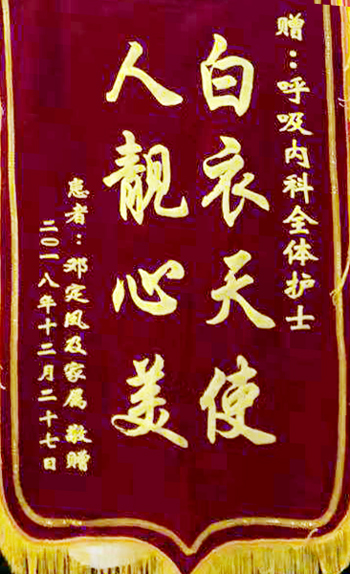 赠：呼吸内科全体护士
白衣天使
人靓心美
患者：邓定凤及家属 敬赠
二〇一八年十二月二十七日